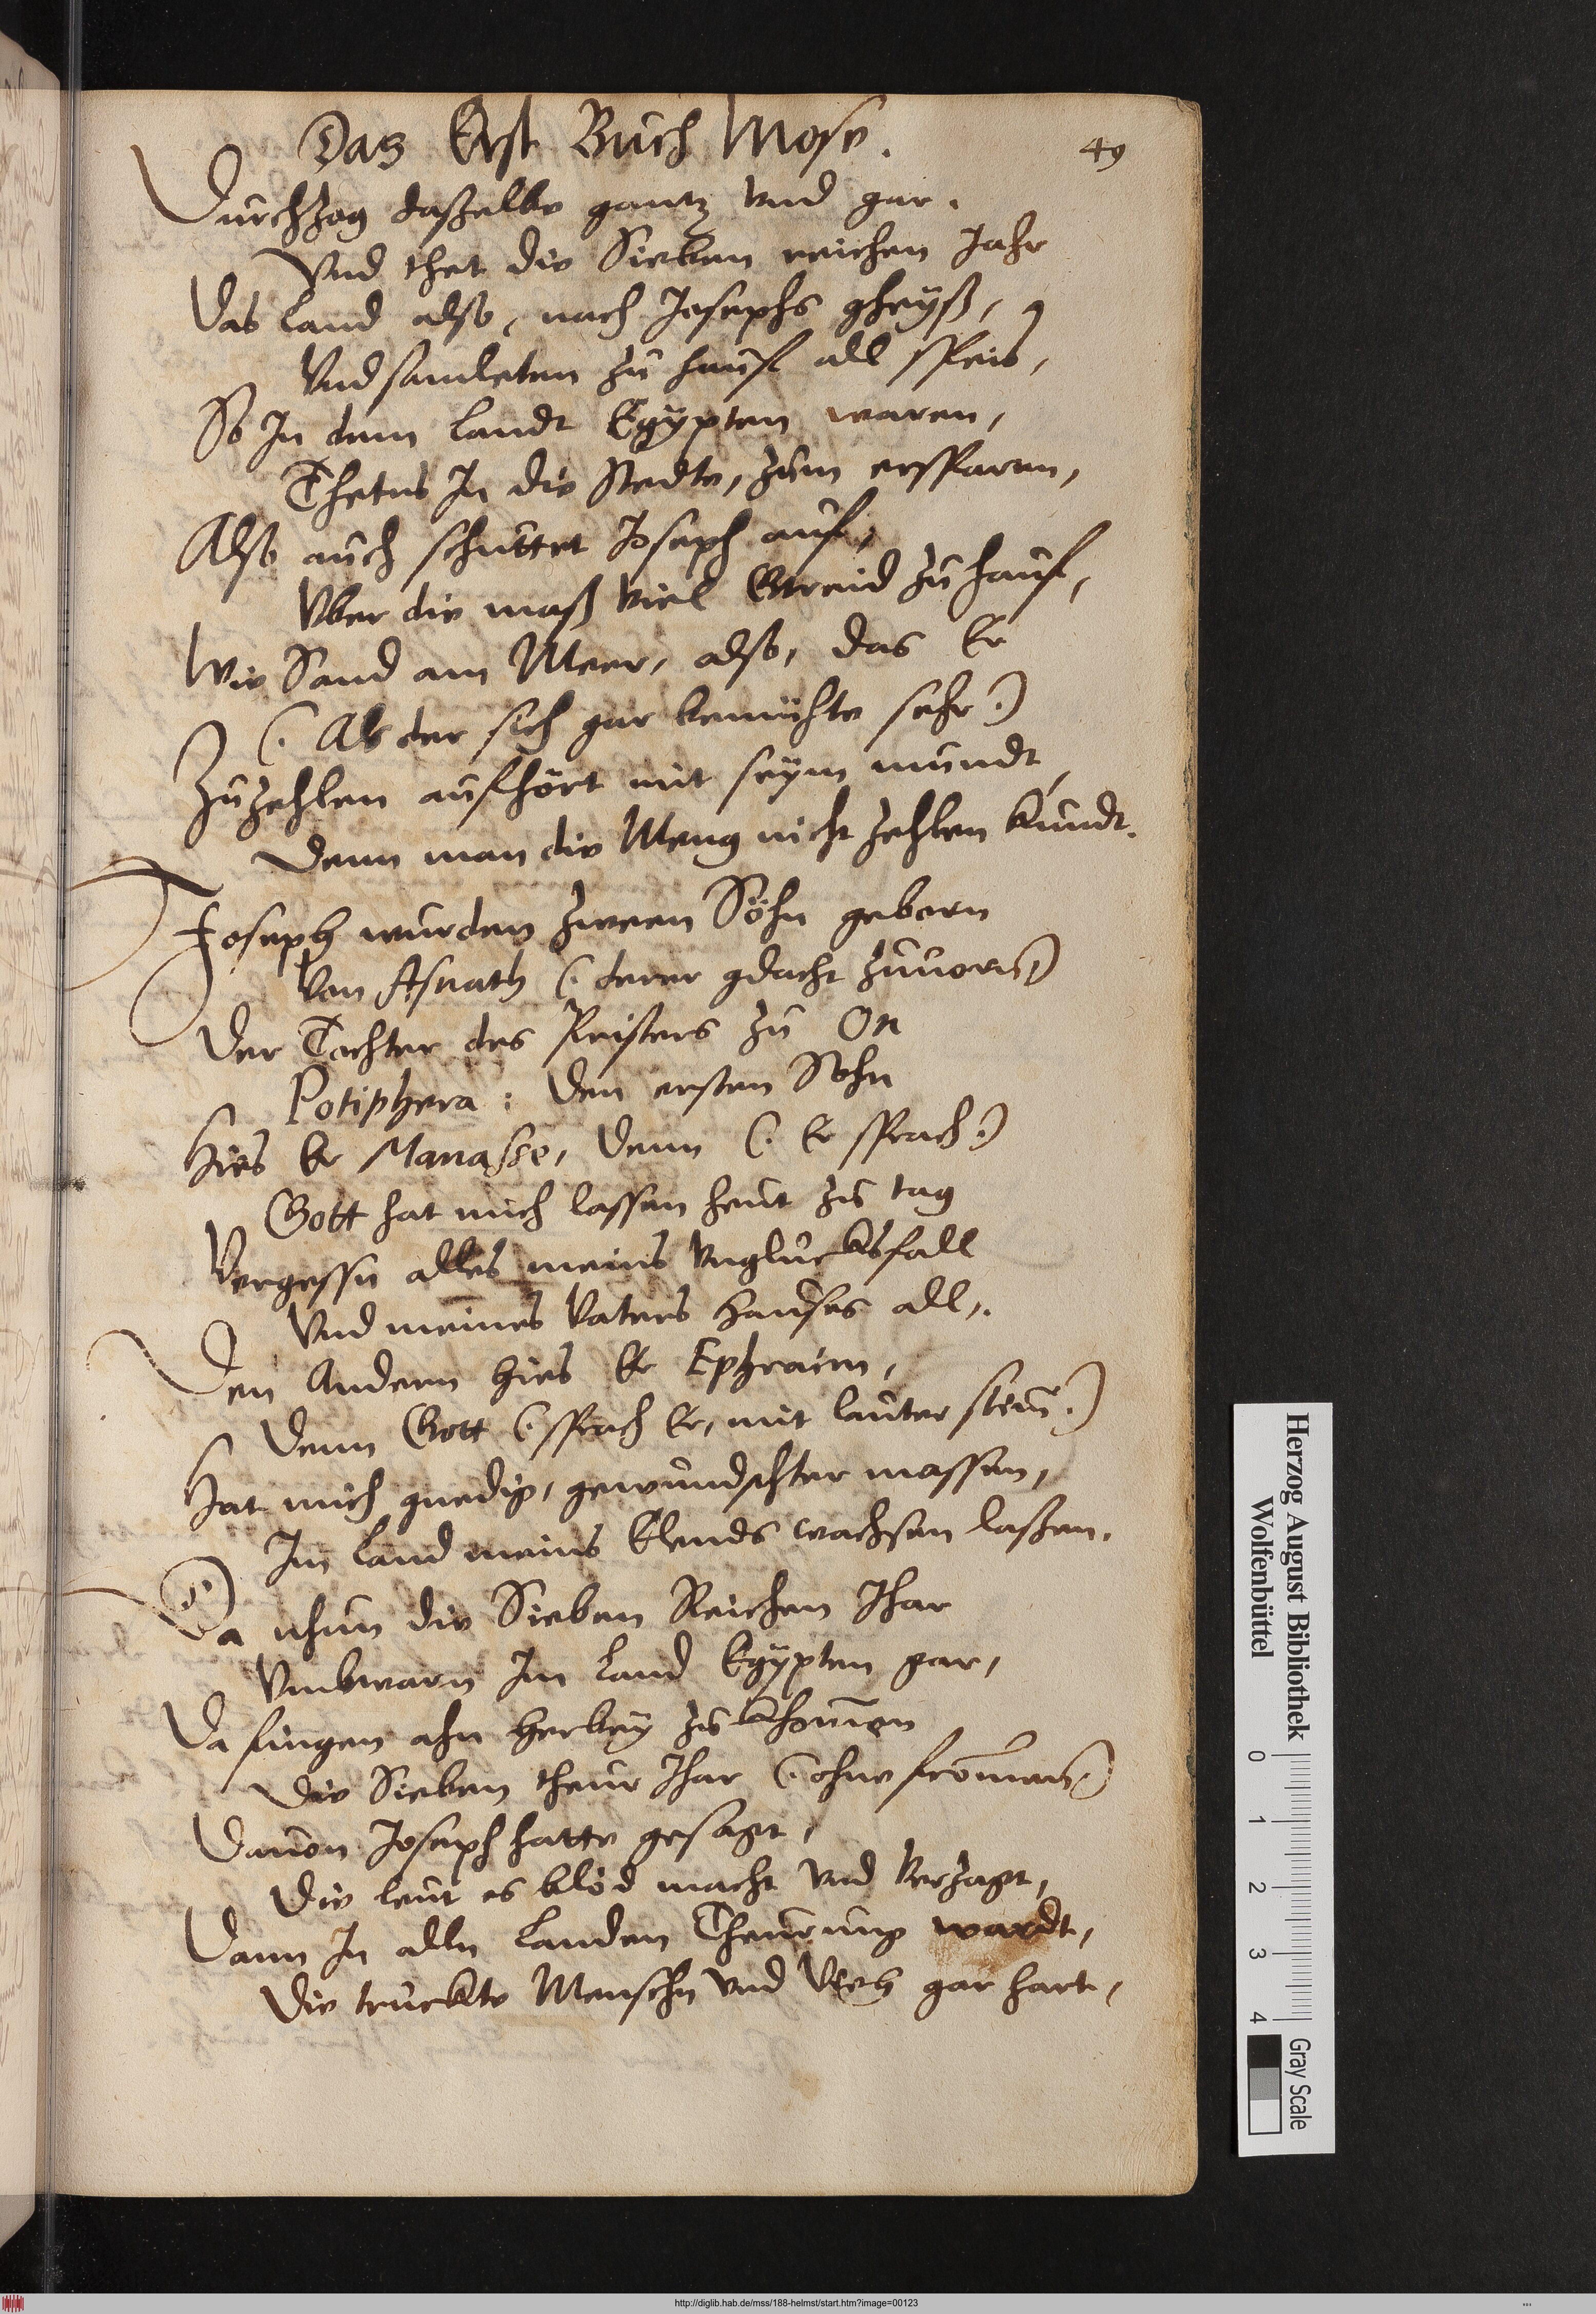 Das Erst Buch Mose.
49
Durchzog daßelbe gantz vnd gar.
Vnd thet die Sieben reichen Jahr
Das Land also, nach Josephs gheyß,
Vnd samleten zu hauf all Speis,
So In dem Landt Egÿpten waren,
Thetns In die Stedte, zum ersparen,
Also auch schuttet Joseph auf,
Vber die maß viel Getreid zu hauf,
Wie Sand am Meer, also, das Er
(. Als der sich gar bemühte sehr.)
Zu zehlen aufhört mit seÿm mundt,
Denn man die Meng nicht zehlen kundt.
Joseph wurden zween Söhn geborn
Von Asnath (. derer gdacht zuuorn.)
Der Tochter des Pristers zu On
Potiphera: Den ersten Sohn
Hies Er Manasse, Denn (. Er sprach.)
Gott hat mich lassen heut zu tag
Vergessn alles meins Vnglucksfall
Vnd meines Vaters Hauses all.
Den Andern hies Er Ephraim,
Denn Gott (. sprach Er, mit lauter stim̃.)
Hat mich gnedig, gewundschter massen,
Im Land meins Elends wachsen laßen.
Da nhun die Sieben Reichen Jhar
Vmbwarn Im Land Egÿpten gar,
Da fingen ahn herbeÿ zu khom̃en
Die Sieben theur Jhar (. ohne from̃en.)
Dauon Joseph hatte gesagt,
Die leut es blöd macht vnd verzagt,
Dann In alln Landen Theurung wardt,
Die truckte Menschn vnd Vieh gar hart,
Herzog August Bibliothek
Wolfenbüttel
0 1 2 3 4
Gray Scale
http://diglib.hab.de/mss/188-helmst/start.htm?image=00123